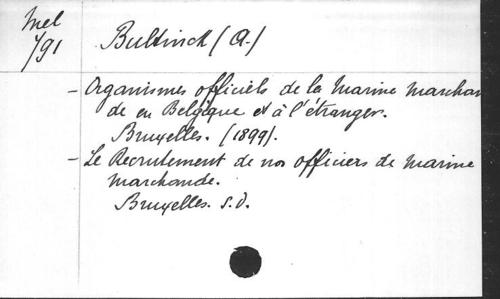 Mel
791
Bultinck (A.)
- Organismes officiels de la Marine Marchan
de en Belgique et à l'étranger.
Bruxelles. (1899).
- Le Recrutement de nos officiers de Marine
Marchande.
Bruxelles. s.d.